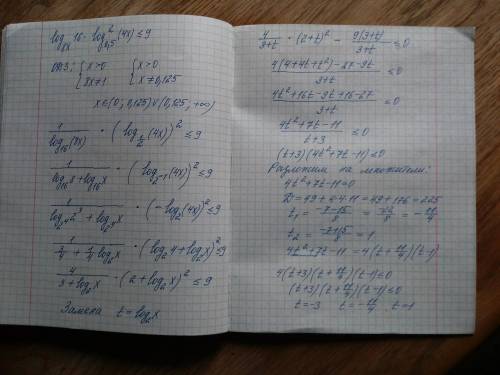 log_{8x} 16 · log²_{0,5} (4x) ≤ 9
ОДЗ: { x > 0    { x > 0
     { 8x ≠ 1   { x ≠ 0,125
x ∈ (0; 0,125) ∪ (0,125; +∞)
1/log_{16}(8x) · (log_{1/2}(4x))² ≤ 9
1/(log_{16} 8 + log_{16} x) · (log_{2^{-1}}(4x))² ≤ 9
1/(log_{2^4} 2^3 + log_{2^4} x) · (-log_2(4x))² ≤ 9
1/(3/4 + 1/4 log_2 x) · (log_2 4 + log_2 x)² ≤ 9
4/(3 + log_2 x) · (2 + log_2 x)² ≤ 9
Замена t = log_2 x
4/(3+t) · (2+t)² - 9(3+t)/(3+t) ≤ 0
(4(4+4t+t²) - 27 - 9t)/(3+t) ≤ 0
(4t² + 16t - 9t + 16 - 27)/(3+t) ≤ 0
(4t² + 7t - 11)/(t+3) ≤ 0
(t+3)(4t² + 7t - 11) ≤ 0
Разложим на множители:
4t² + 7t - 11 = 0
D = 49 + 4·4·11 = 49 + 176 = 225
t_1 = (-7-15)/8 = -22/8 = -11/4
t_2 = (-7+15)/8 = 1
4t² + 7t - 11 = 4(t + 11/4)(t-1)
4(t+3)(t + 11/4)(t-1) ≤ 0
(t+3)(t + 11/4)(t-1) ≤ 0
t = -3   t = -11/4   t = 1